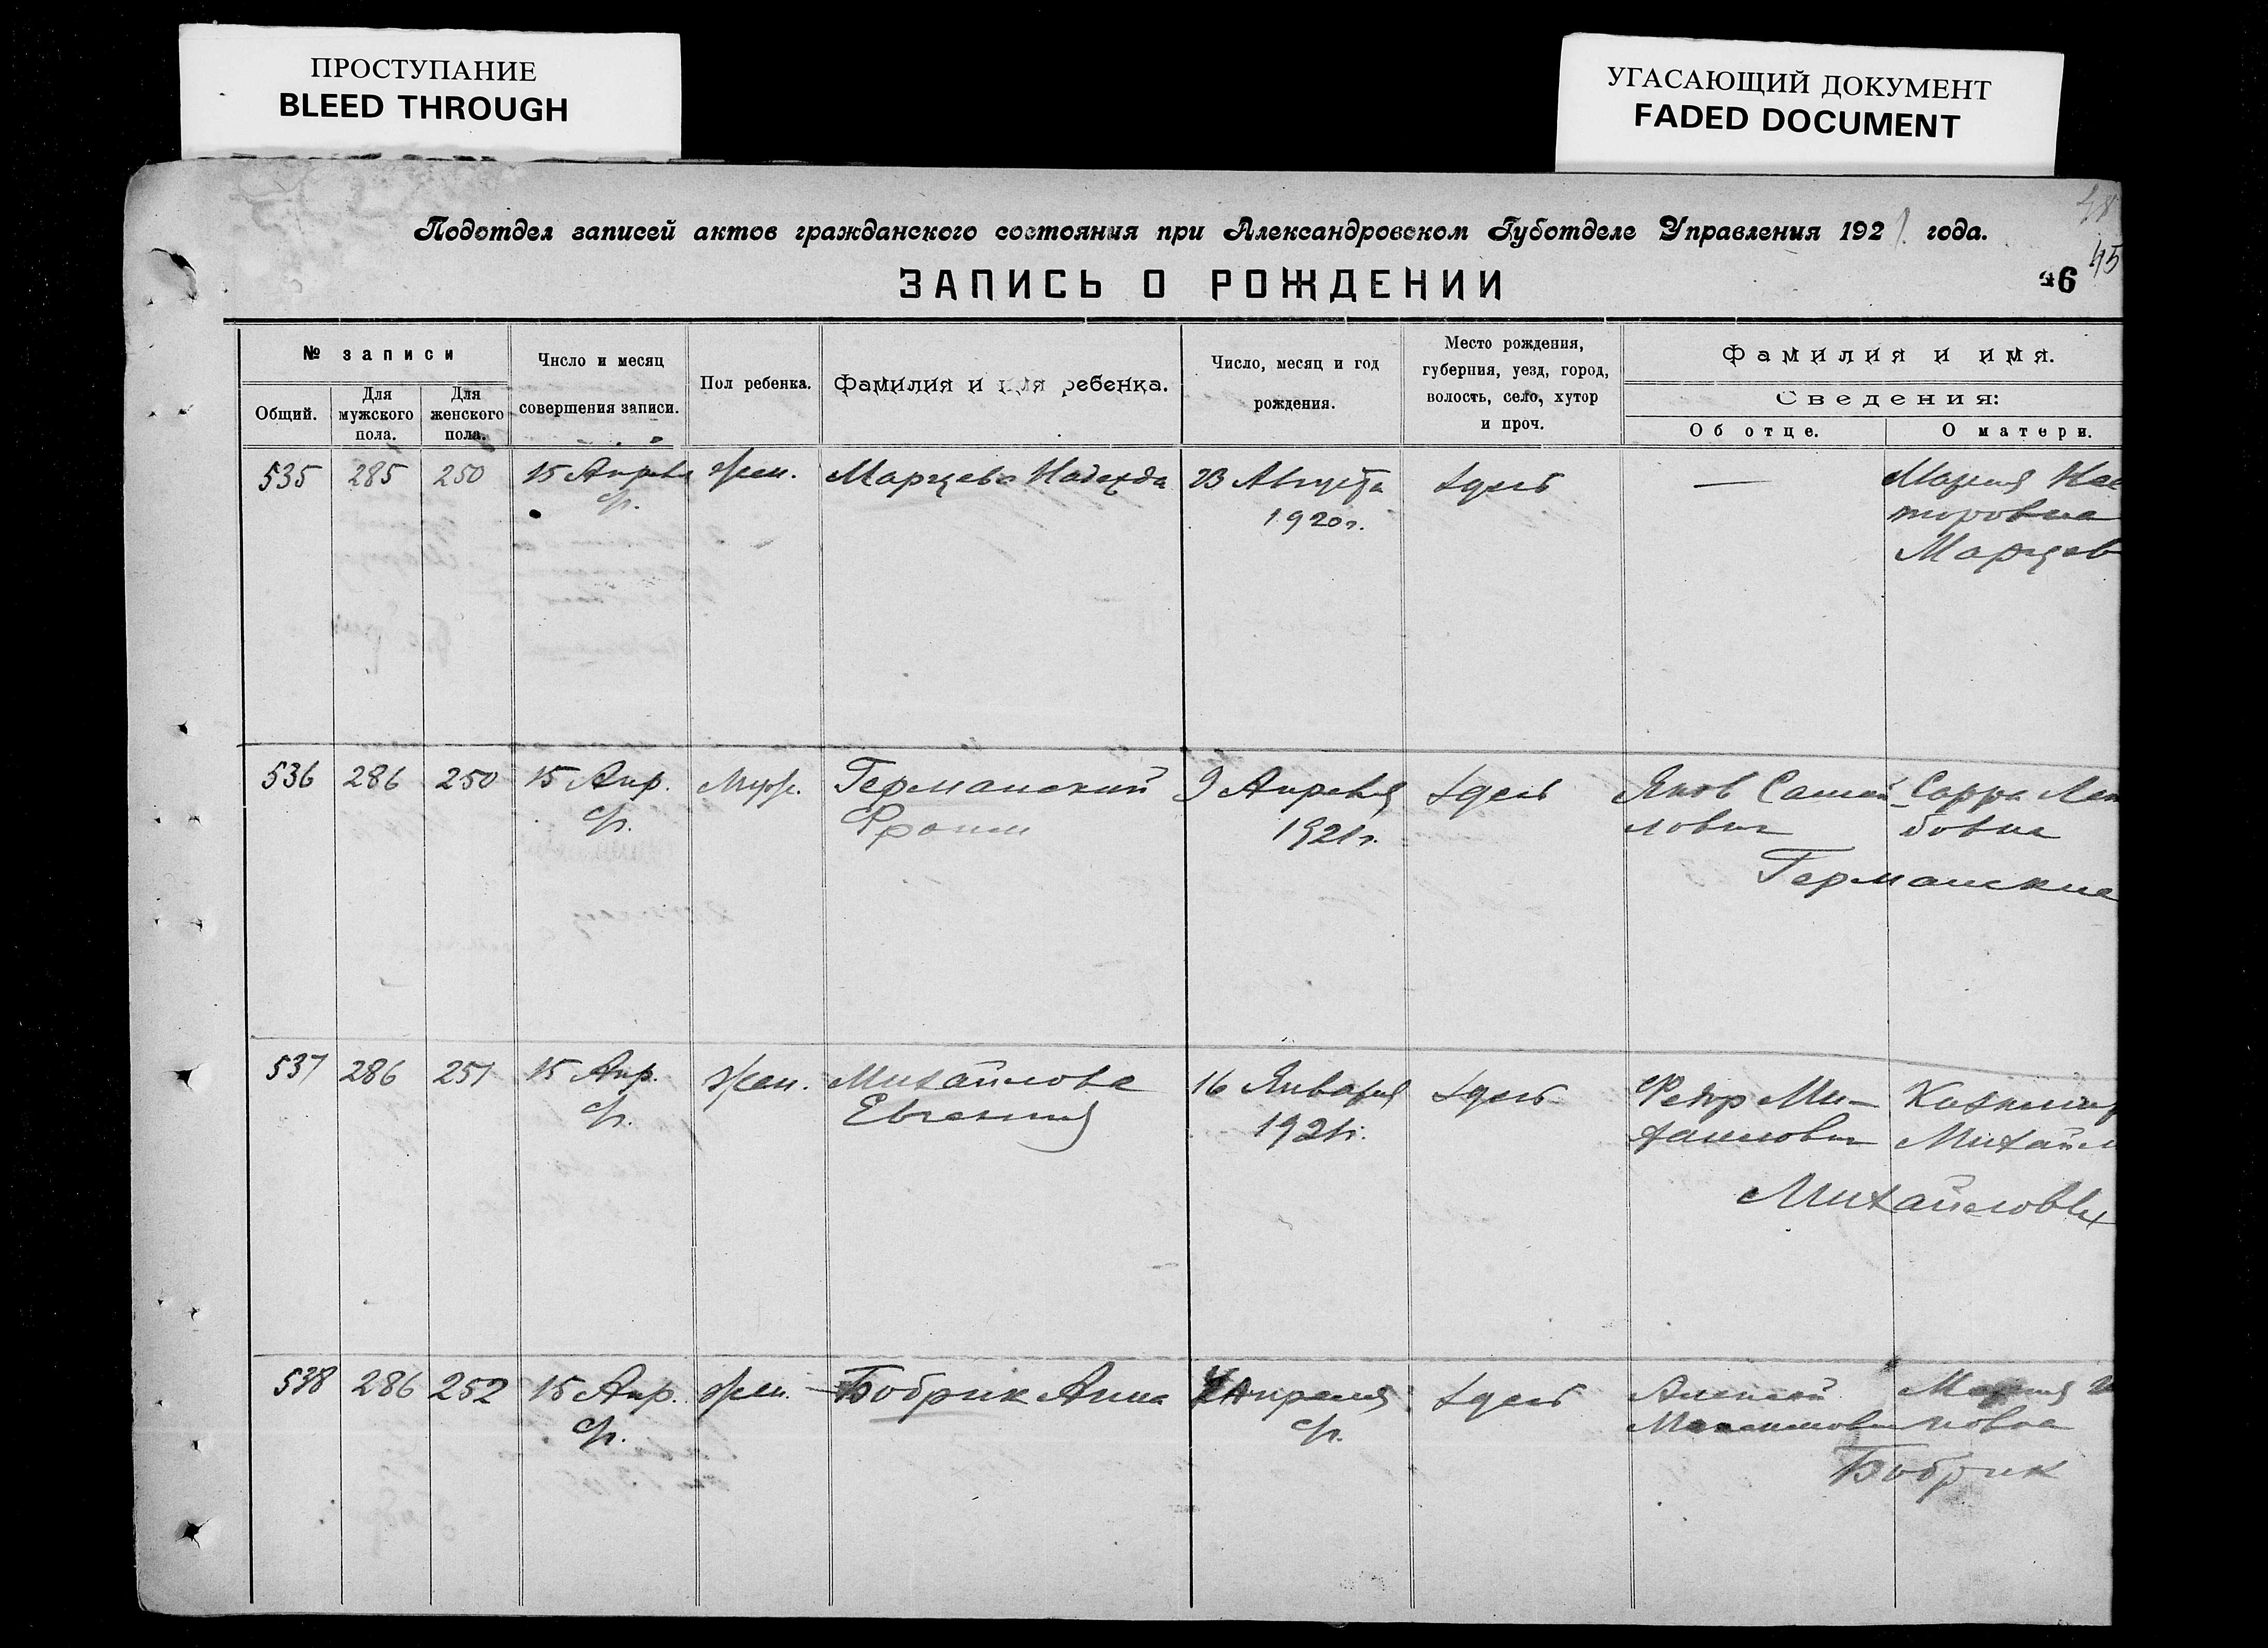 ПРОСТУПАНИЕ
BLEED THROUGH
УГАСАЮЩИЙ ДОКУМЕНТ
FADED DOCUMENT
Подотдел записей актов гражданского состояния при Александровском Губотделе Управления 1921 года.
45
ЗАПИСЬ О РОЖДЕНИИ
46
№ записи
Общий.
Для мужского пола.
Для женского пола.
Число и месяц
совершения записи.
Пол ребенка.
Фамилия и имя ребенка.
Число, месяц и год
рождения.
Место рождения,
губерния, уезд, город,
волость, село, хутор
и проч.
Фамилия и имя.
Сведения:
Об отце.
О матери.
535 285 250 15 Апреля жен. Марцева Надежда 23 Августа здесь — Мария Нес
с/г. 1920г. торовна
Марцев
536 286 250 15 Апр. Муж. Германский 9 Апреля здесь Яков Самой- Сарра
с/г. Фроим 1921г. лович бовна
Германские
537 286 251 15 Апр. жен. Михайлова 16 Января здесь Федор Ми-
с/г. Евгения 1921г. хайлович Михайл
Михайловы
538 286 252 15 Апр. жен. Бобрик Анна Апреля здесь Алексей Мария
с/г. с/г. Максимович новна
Бобрик